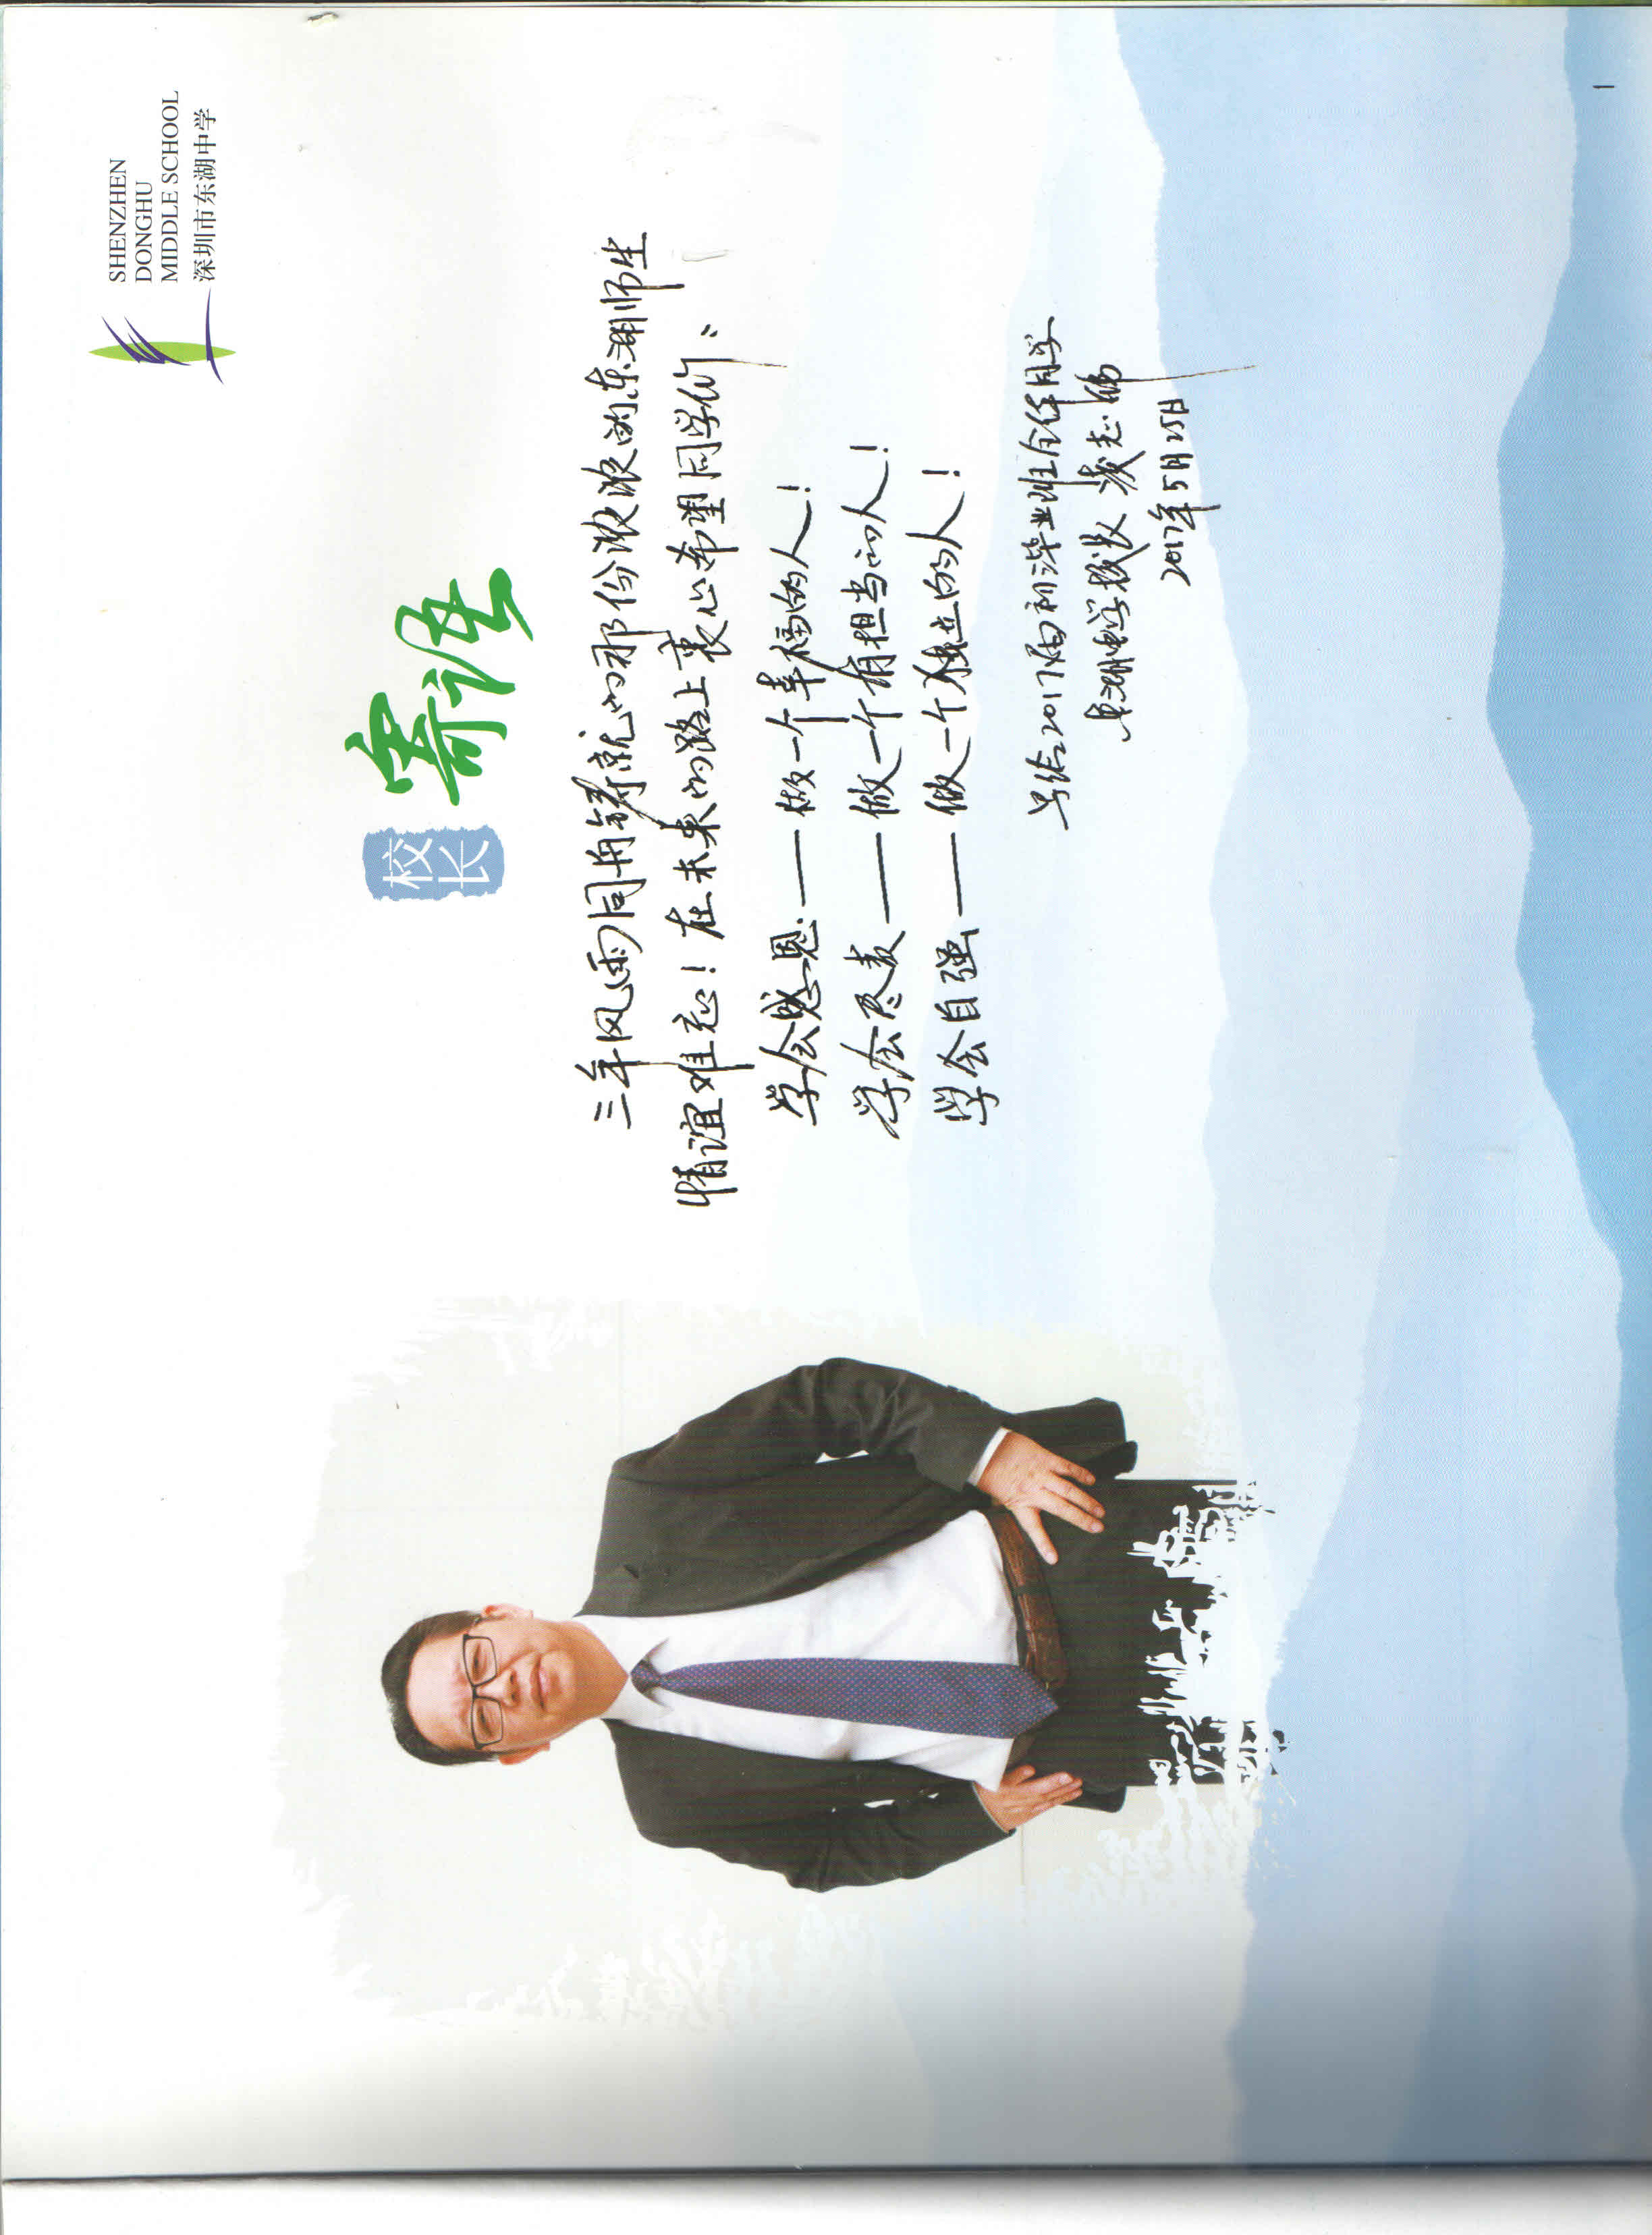 SHENZHEN
DONGHU
MIDDLE SCHOOL
深圳市东湖中学
校长
寄语
三年风雨同舟铸就的那份浓浓的东湖师生
情谊难忘！在未来的路上衷心希望同学们：
学会感恩——做一个幸福的人！
学会尽责——做一个有担当的人！
学会自强——做一个独立的人！
写给2017届初三毕业班全体同学
东湖中学校长 凌志伟
2017年5月25日
1